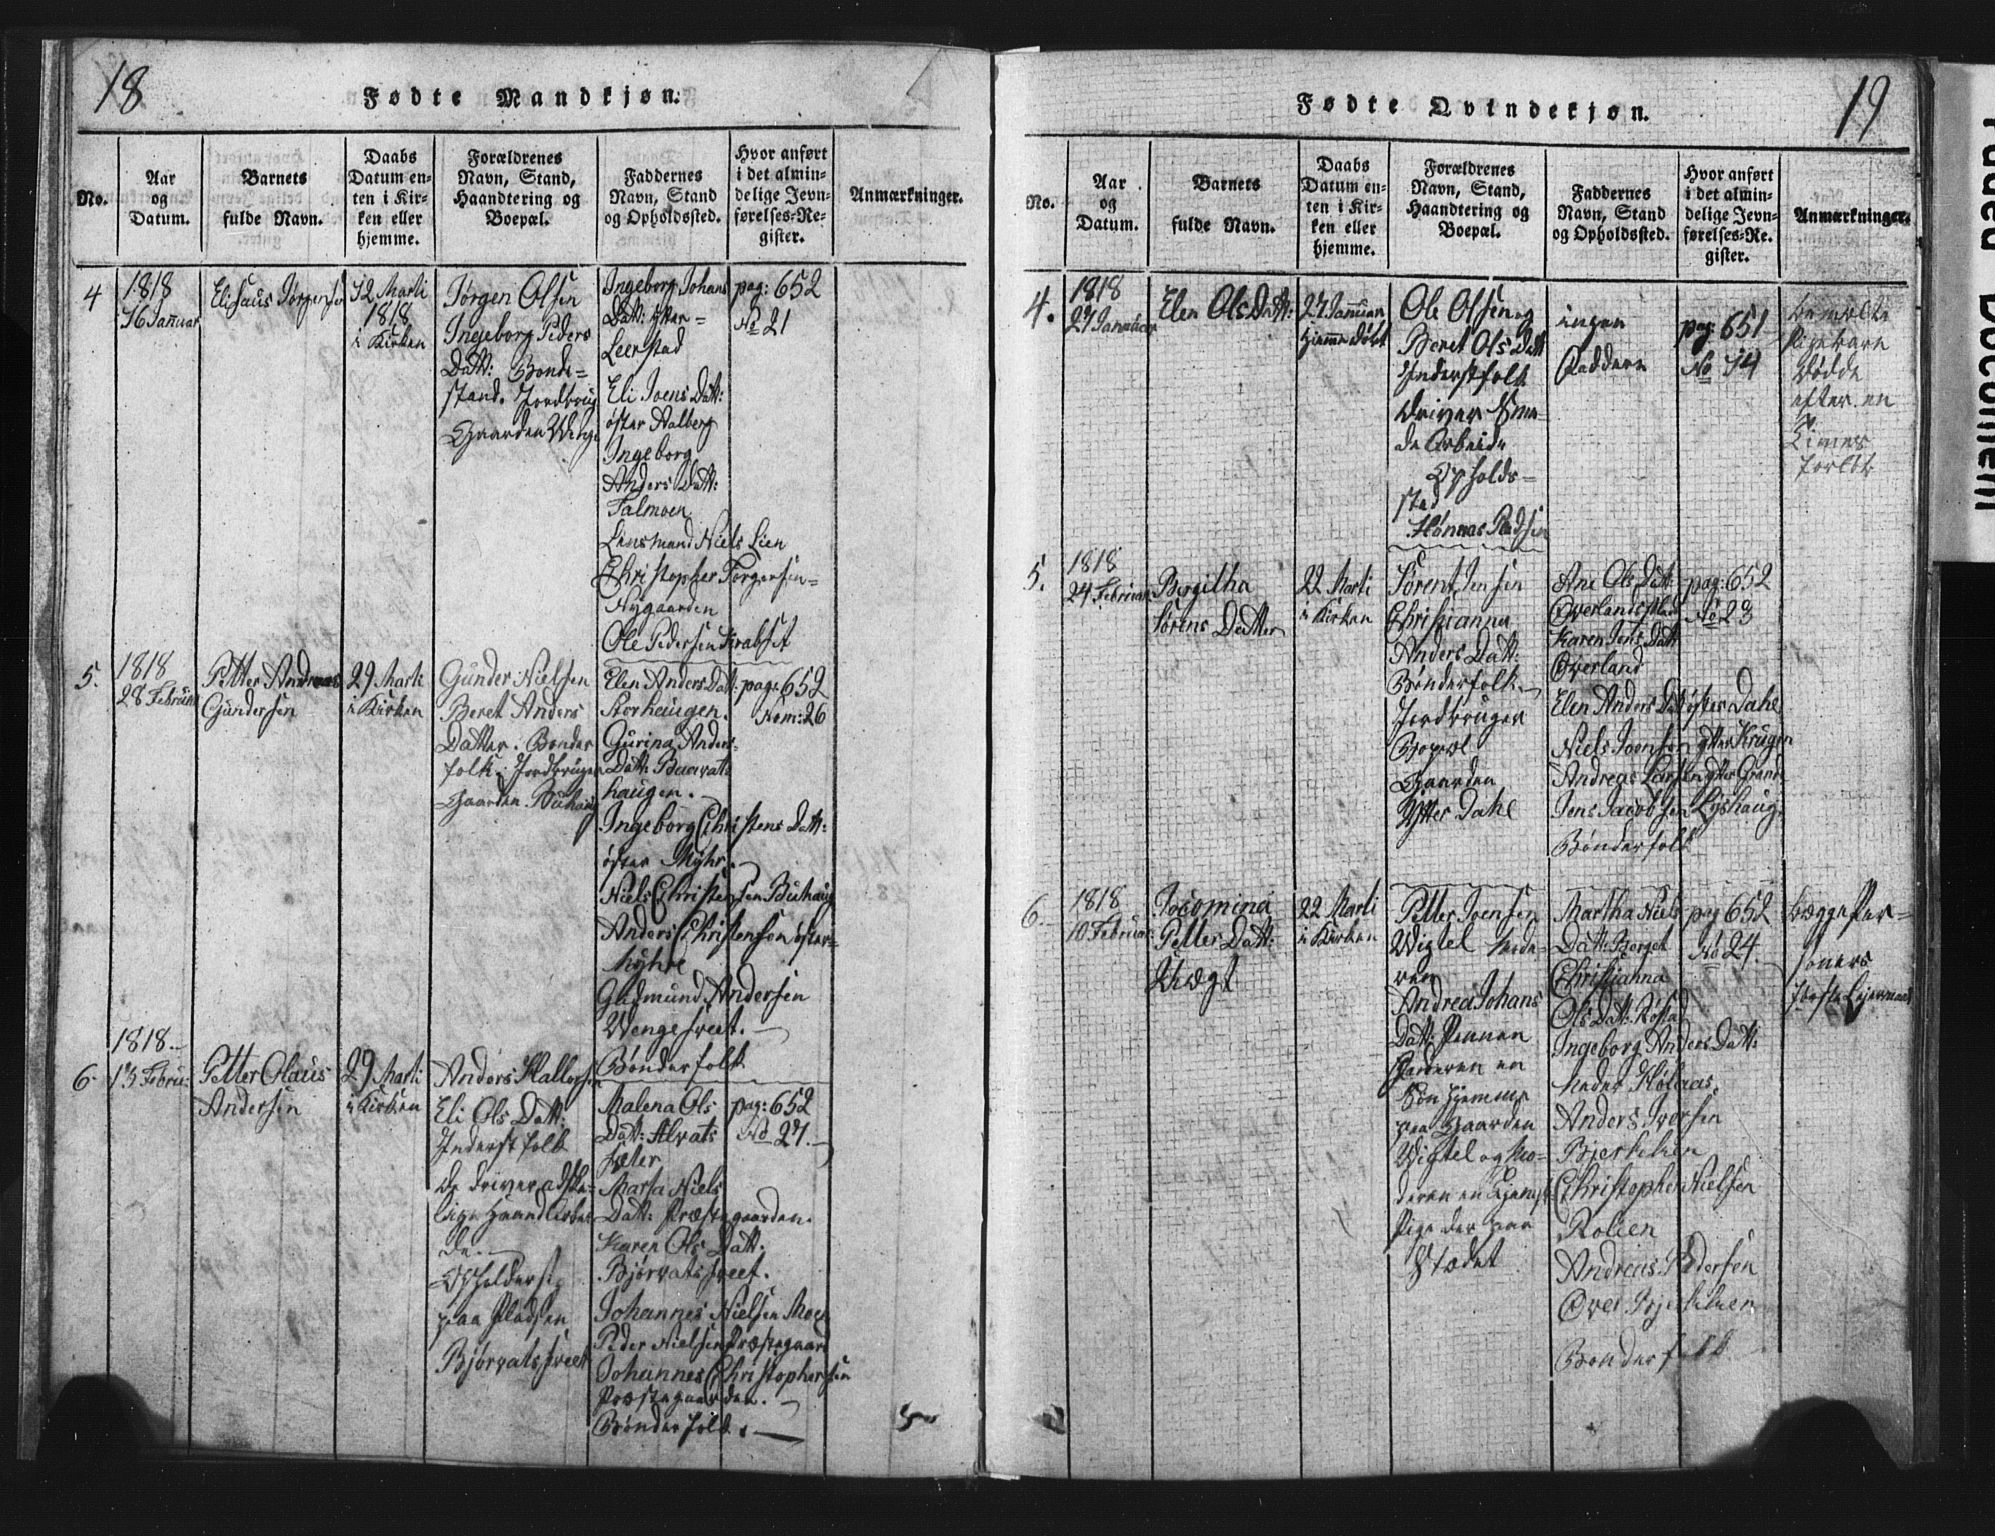 18
Fødte Mandkjøn.
No.
Aar
og
Datum.
Barnets
fulde Navn.
Daabs
Datum en-
ten i Kir-
ken eller
hjemme.
Forældrenes
Navn, Stand,
Haandtering og
Boepæl.
Faddernes
Navn, Stand
og Opholdssted.
Hvor anført
i det almin-
delige Jevn-
førelses-Re-
gister.
Anmærkninger.
4
1818
16 Januar
Elisæus Jørgensen
12 Marti
1818
i Kirken
Jørgen Olsen
Ingeborg Peders
Datt: Bonde-
stand. Jordbrug
Gaarden Wenge
Ingeborg Johans
Datt: ytter-
Leerstad
Eli Joens Datt:
øster Aalberg
Ingeborg
Anders Datt:
Talmoen
Lensmand Niels Lien
Christopher Torgersen-
Nygaarden
Ole Pedersen Krabset
pag: 652
No 21
5.
1818
28 Februar
Petter Andreas
Gundersen
29 Marti
i Kirken
Gunder Nielsen
Beret Anders
Datter. Bonder
folk. Jordbruger
Gaarden Buhaug
Elen Anders Datt:
Storhaugen.
Gurina Anders-
Datt:
haugen.
Ingeborg Christens Datt:
øster Myhr.
Niels Christensen Buhaug
Anders Christensen øster-
Myhre
Gudmund Andersen
Wengesveet.
Bønderfolk
pag: 652
Nom: 26
6.
1818.
13 Febru:
Petter Olaus
Andersen
29 Marti
i Kirken
Anders Hallorsen
Eli Ols Datt:
Inderstfolk
de driver adskil-
lige Haandarbei
de.
paa Pladsen
Bjørvatssveet
Malena Ols
Datt: Alvats
sæter
Marta Niels
Datt: Præstegaarden.
Karen Ols Datt.
Bjørvatssveet.
Johannes Nielsen Moen
Peder Nielsen Præstegaard
Johannes Christophersen
Præstegaarden.
Bønderfolk.
pag: 652
No 27.
19
Fødte Qvindekjøn.
No.
Aar
og
Datum.
Barnets
fulde Navn.
Daabs
Datum en-
ten i Kir-
ken eller
hjemme.
Forældrenes
Navn, Stand,
Haandtering og
Boepæl.
Faddernes
Navn, Stand
og Opholdssted.
Hvor anført
i det almin-
delige Jevn-
førelses-Re-
gister.
Anmærkninger.
4.
1818
27 Januar
Elen Ols Datt:
27 Januar
hjemme døbt
Ole Olsen og
Beret Ols Datt
Inderstfolk
driver Sma-
de Arbeide
Opholds-
sted
Pladsen
ingen
Faddere
pag: 651
No 14
bemelte
Pigebarn
døde
efter en
Times
forløb
5.
1818
24 Februar
Bergitha
Sørens Datter
22 Marti
i Kirken
Sørent Jensen
Christianna
Anders Datt:
Bønderfolk
Jordbruger
Bopæl
Gaarden
Ytter Dahl
Ane Ols Datt:
Overlandsplad
Karen Jens Datt
Overland
Elen Anders Datt øster Dahl
Niels Joensen ytter Krugen
Andreas Larsen ytter Grand
Jens Jacobsen Lyshaug.
Bønderfolk
pag: 652
No 23
6.
1818
10 Februar
Jocomina
Petters Datt:
Uægt
22 Marti
i Kirken
Petter Joensen
Wigtel
Andrea Johans
Datt:
Faderen en
Søn hjemme
paa Gaarden
Wigtel og Mo-
deren en tjeneste
Pige der paa
Stædet
Martha Niels
Datt: Berget
Christianna
Ols Datt: Røstad
Ingeborg Anders Datt:
neder Høknas.
Anders Iversen
Bjerkhen
Christopher Nielsen
Rolien
Andreas Pedersen
Over Bjerkhen
Bønderfolk
pag 652
No 24.
begge Per-
soners
første Leiermaal